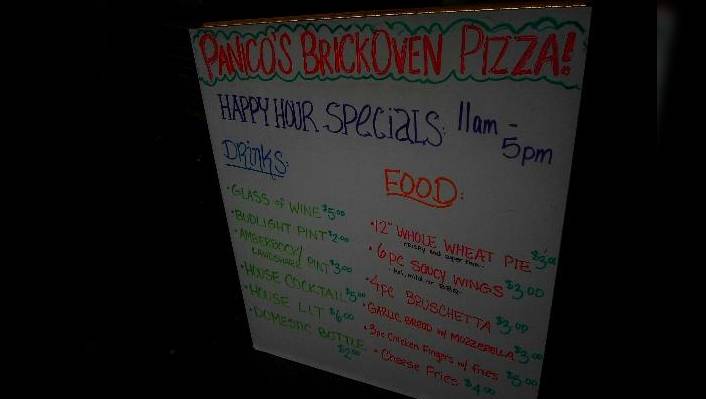 PANICO'S BRICKOVEN PIZZA!
HAPPY HOUR SPECIALS: 11am -
5pm
DRINKS:
• GLASS of WINE $5.00
• BUDLIGHT PINT $2.00
• AMBERBOCK/
LANDSHARK PINT $3.00
• HOUSE COCKTAIL $5.00
• HOUSE LIT $6.00
• DOMESTIC BOTTLE
$2.00
FOOD:
• 12" WHOLE WHEAT PIE $3.00
crispy and super thin
• 6pc SAUCY WINGS $3.00
hot, mild or BBQ
• 4pc BRUSCHETTA $3.00
• GARLIC BREAD w/ MOZZERELLA $3.00
• 3pc Chicken Fingers w/ fries $5.00
• Cheese Fries $4.00